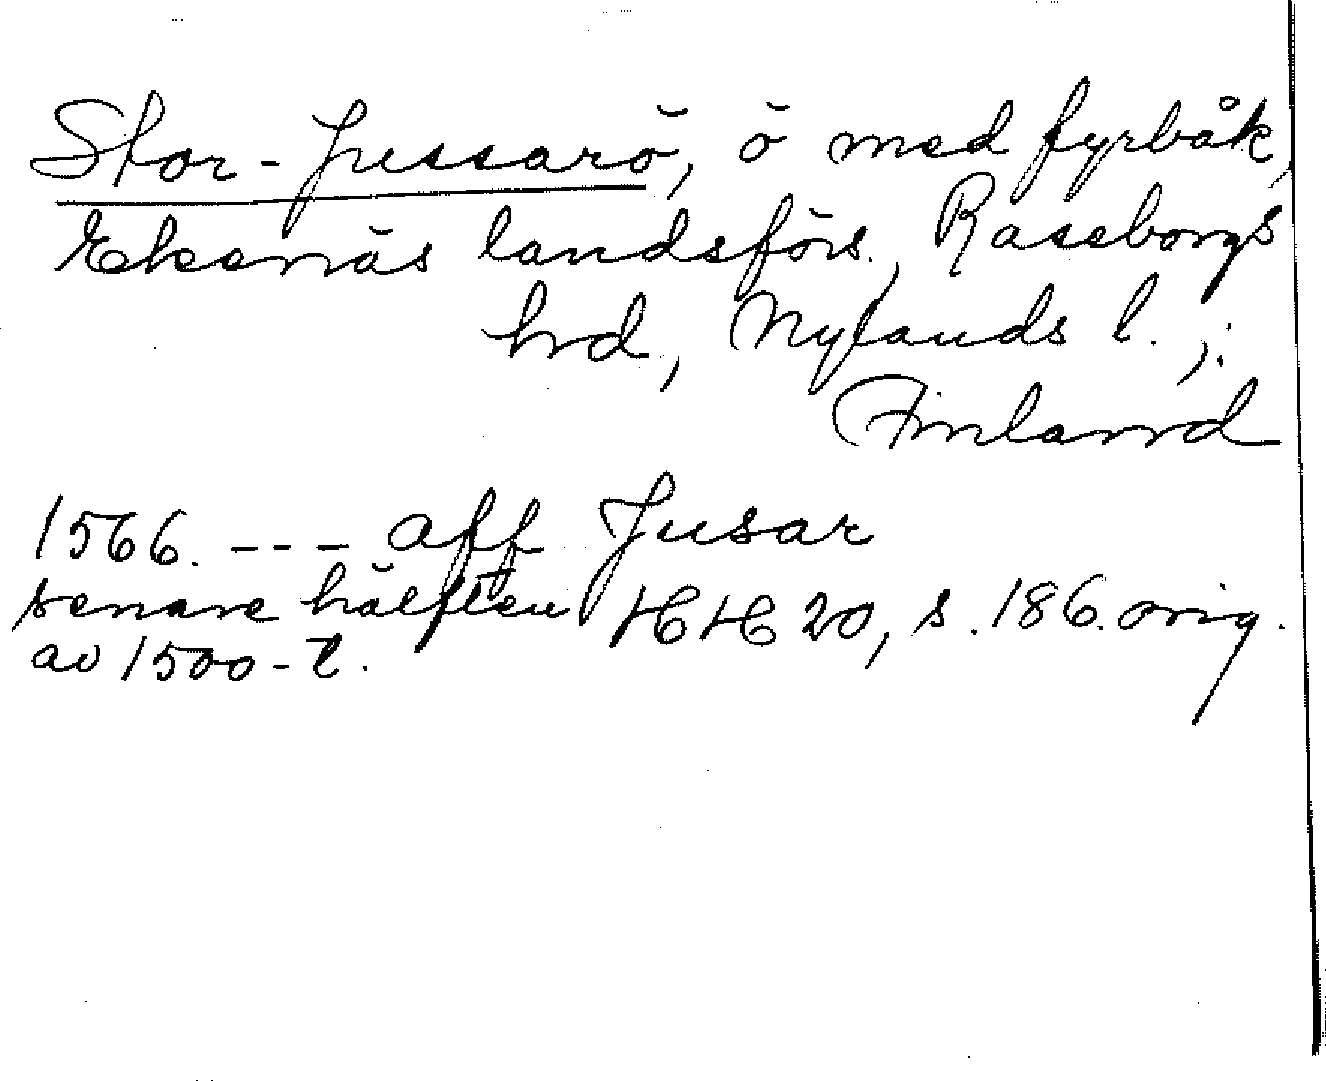 Stor-Jussarö, ö med fyrbåk,
Ekenäs landsförs., Raseborgs
hrd, Nylands l.;
Finland
1566. --- aff Jusar
senare hälften HH 20, s. 186. orig.
av 1500-t.